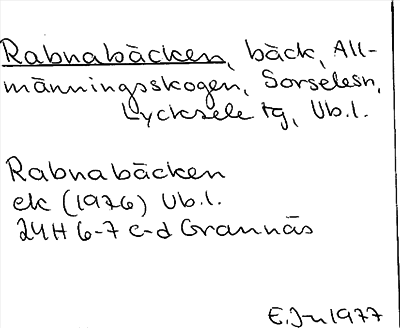 Rabnabäcken, bäck, All-
männingsskogen, Sorselesn,
Lycksele tg, Vb.l.
Rabnabäcken
ek (1976) Vb.l.
24H 6-7 c-d Grannäs
E.J-n 1977